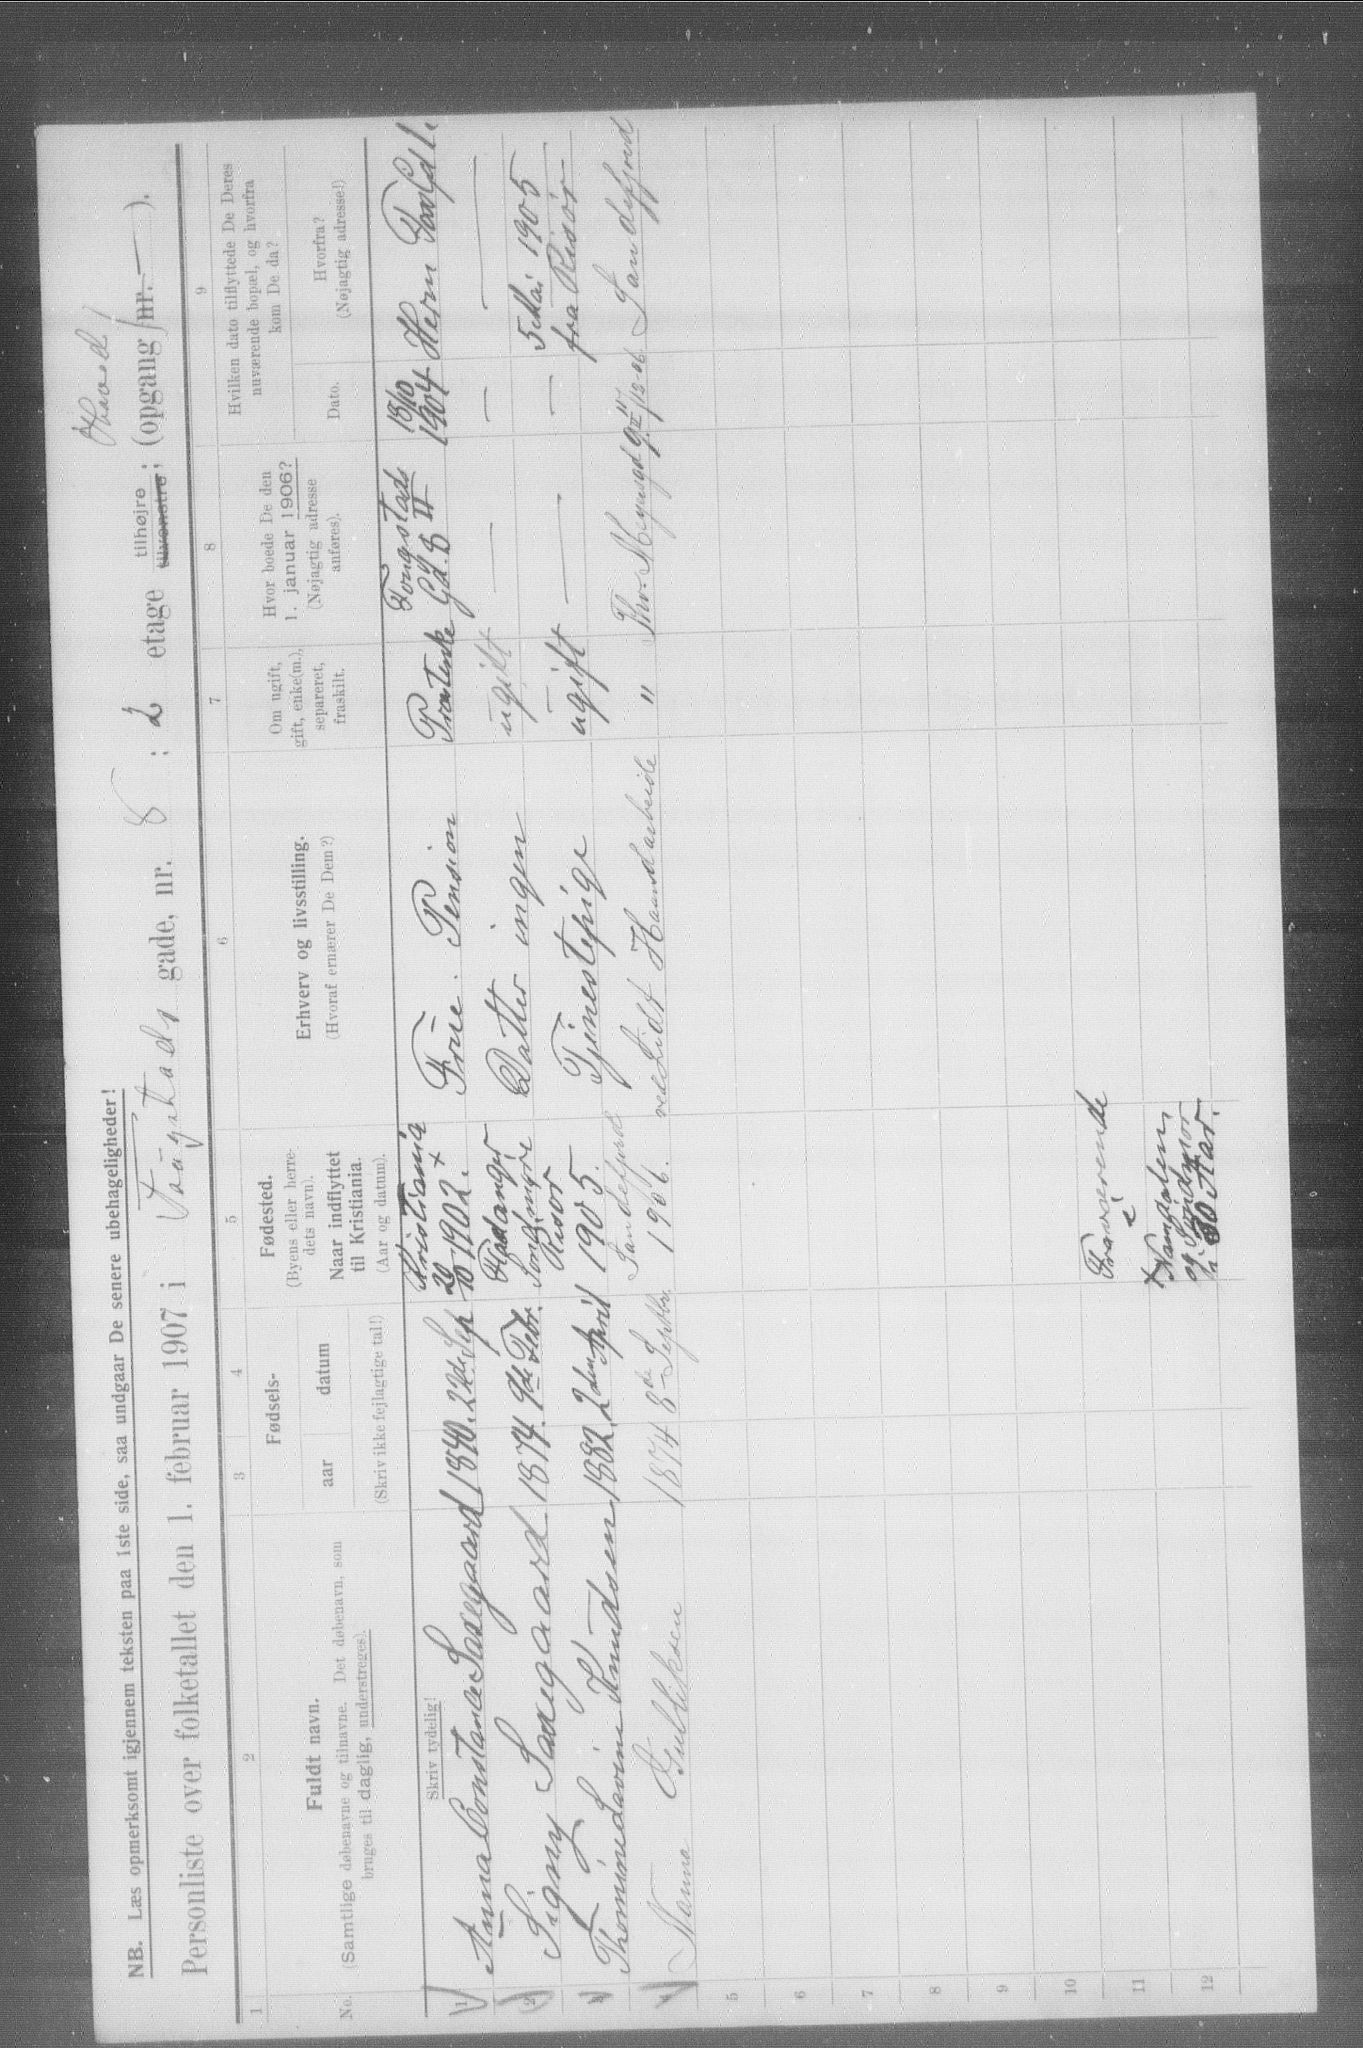 NB. Læs opmerksomt igjennem teksten paa 1ste side, saa undgaar De senere ubehageligheder!
Personliste over folketallet den 1. februar 1907 i gade, nr. 8 ; 2 etage tilhøjre; tilvenstre; (opgang nr. — ).
1 2 3 4 5 6 7 8 9
No.
Fuldt navn.
(Samtlige døbenavne og tilnavne. Det døbenavn, som
bruges til daglig, understreges).
Fødsels-
aar datum
(Skriv ikke fejlagtige tal!)
Fødested.
(Byens eller herre-
dets navn).
Naar indflyttet
til Kristiania.
(Aar og datum).
Erhverv og livsstilling.
(Hvoraf ernærer De Dem?)
Om ugift,
gift, enke(m.),
separeret,
fraskilt.
Hvor boede De den
1. januar 1906?
(Nøjagtig adresse
anføres).
Hvilken dato tilflyttede De Deres
nuværende bopæl, og hvorfra
kom De da?
Dato.
Hvorfra?
(Nøjagtig adresse!)
Skriv tydelig!
1 Anna Constance Saxegaard 1840. Sep Kristiania 1902. + Frue. Pension Gd. 8 II 15/10 1904
2 Signy Saxegaard 1874. 9de Febr. Datter ingen ugift — —
3 Knudsen 1882. 2den April Risør 1905. Tjenestepige ugift — — 5 Mai 1905
fra Risør
4 Nanna 1874 8de Septbr. Sandefjord 1906. ved Lidt Haandarbeide " Thv. Meyersgd 9 II 11/12 06 Sandefjord
5
6
7
8
9
10 Fraværende
i
11 + Namdalen
12 30 Aar.